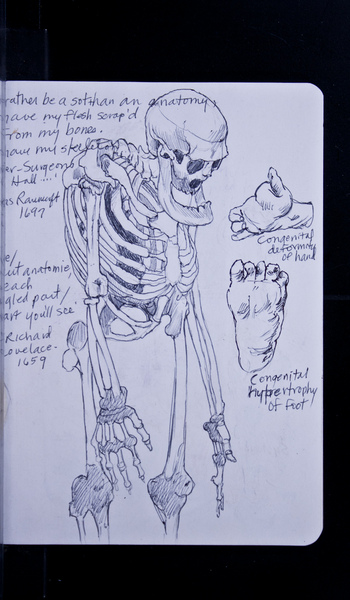 rather be a sot than an anatomy,
have my flesh scrap'd
from my bones.
my
Surgeons
Hall ....
1697
anatomie
each
part/
you'll see.
Richard
Lovelace-
1659
Congenital
deformity
of hand
Congenital
hypertrophy
of foot